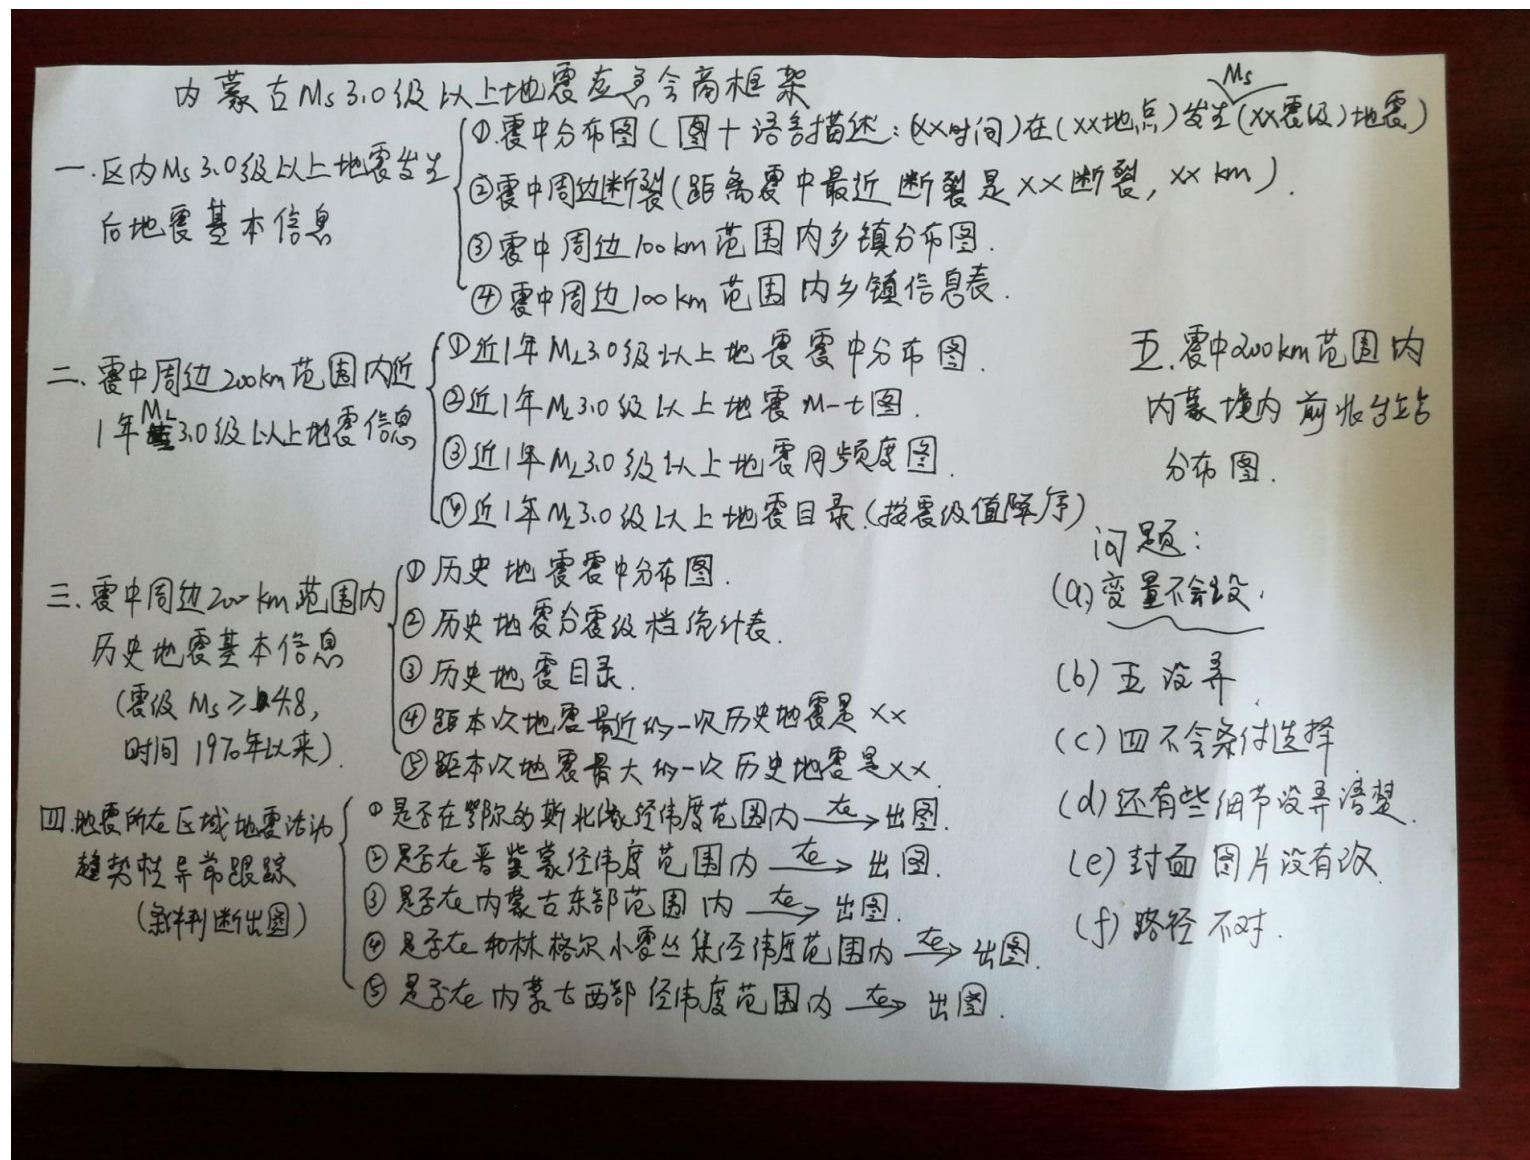 内蒙古Ms3.0级以上地震应急会商框架
一.区内Ms3.0级以上地震发生
后地震基本信息
Ms
①.震中分布图(图+语言描述:(xx时间)在(xx地点)发生(xx震级)地震)
②震中周边断裂(距离震中最近断裂是xx断裂,xx km).
③震中周边100km范围内乡镇分布图.
④震中周边100km范围内乡镇信息表.
二、震中周边200km范围内近
1年ML3.0级以上地震信息
①近1年ML3.0级以上地震震中分布图.
②近1年ML3.0级以上地震M-t图.
③近1年ML3.0级以上地震月频度图.
④近1年ML3.0级以上地震目录.(按震级值降序)
三、震中周边200km范围内
历史地震基本信息
(震级Ms≥4.8,
时间1970年以来).
①历史地震震中分布图.
②历史地震分震级档统计表.
③历史地震目录.
④距本次地震最近的一次历史地震是xx
⑤距本次地震最大的一次历史地震是xx.
四.地震所在区域地震活动
趋势性异常跟踪
(条件判断出图)
①是否在鄂尔多斯北缘经纬度范围内 在→ 出图.
②是否在晋冀蒙经纬度范围内 在→ 出图.
③是否在内蒙古东部范围内 在→ 出图.
④是否在和林格尔小震丛集经纬度范围内 在→ 出图.
⑤是否在内蒙古西部经纬度范围内 在→ 出图.
五.震中200km范围内
内蒙境内前兆台站
分布图.
问题:
(a)变量不会设.
(b)五没弄.
(c)四不会条件选择
(d)还有些细节没弄清楚.
(e)封面图片没有改.
(f)路径不对.